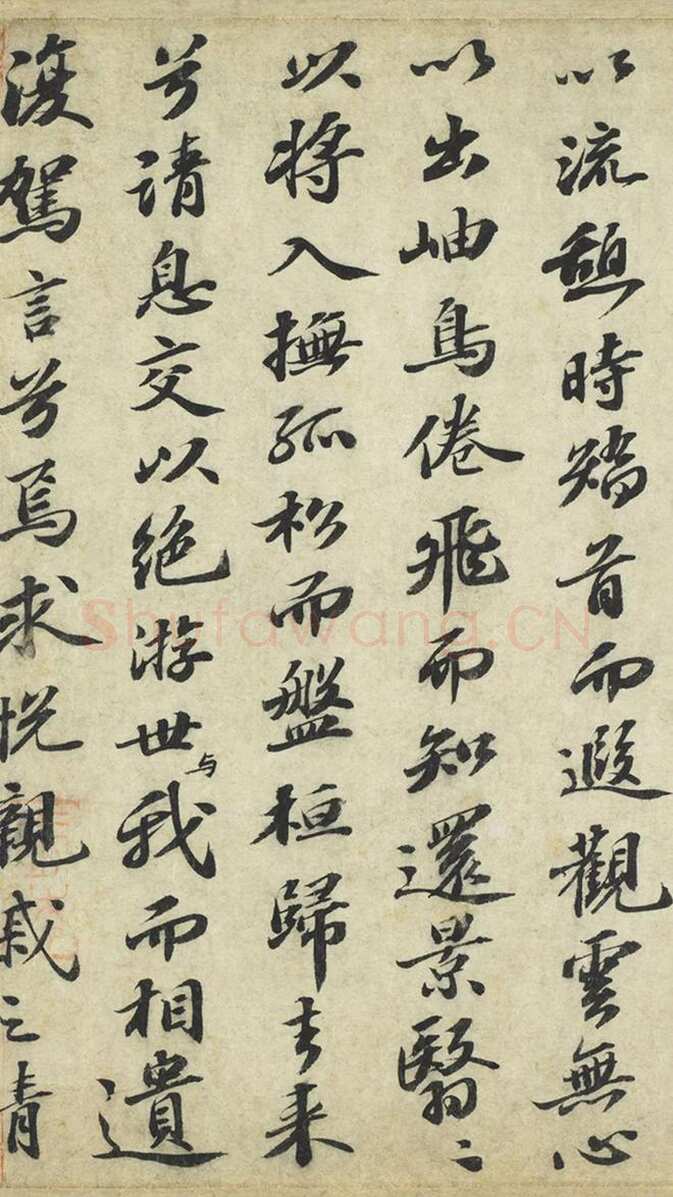 以流憩時矯首而遐觀雲無心
以出岫鳥倦飛而知還景翳〻
以将入撫孤松而盤桓歸去来
兮請息交以絶游世与我而相遺
復駕言兮焉求悦親戚之情
Shufawang.CN